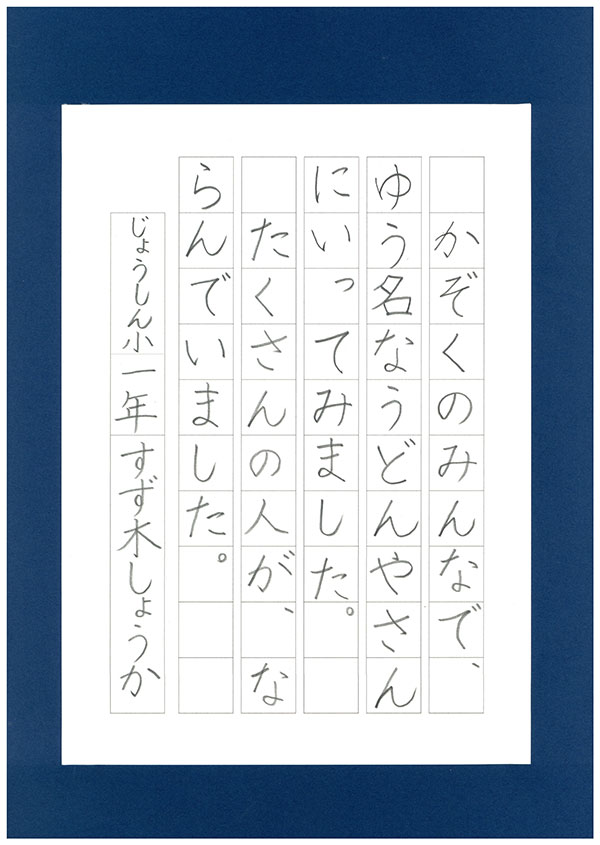 かぞくのみんなで、
ゆう名なうどんやさん
にいってみました。
たくさんの人が、な
らんでいました。
じょうしん小一年すず木しょうか